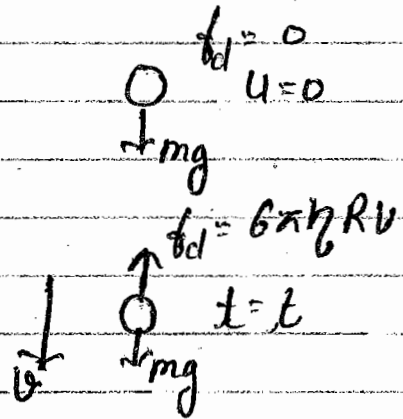 fd = 0
u = 0
mg
fd = 6πηRv
t = t
v
mg